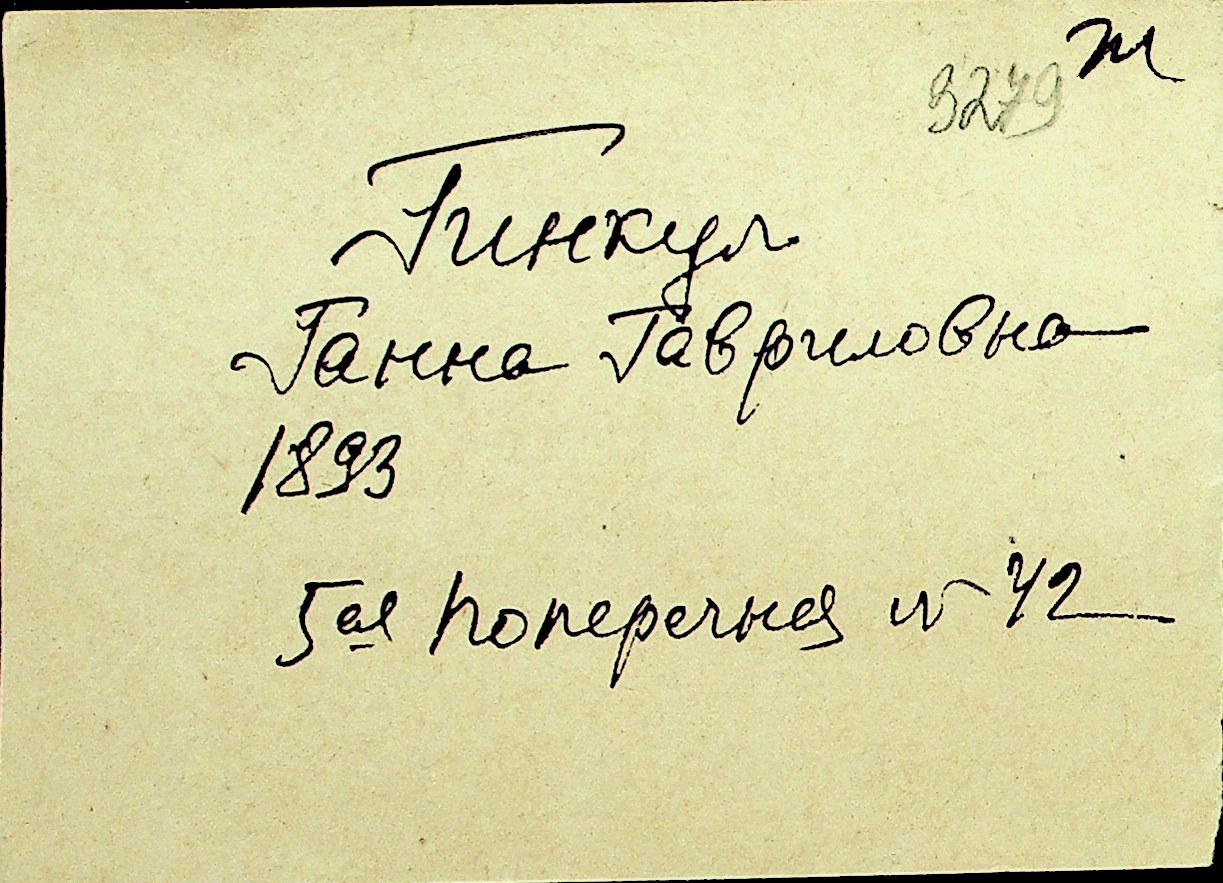 3279
Гинкул
Ганна Гавриловна
1893
5ая Поперечная N 42